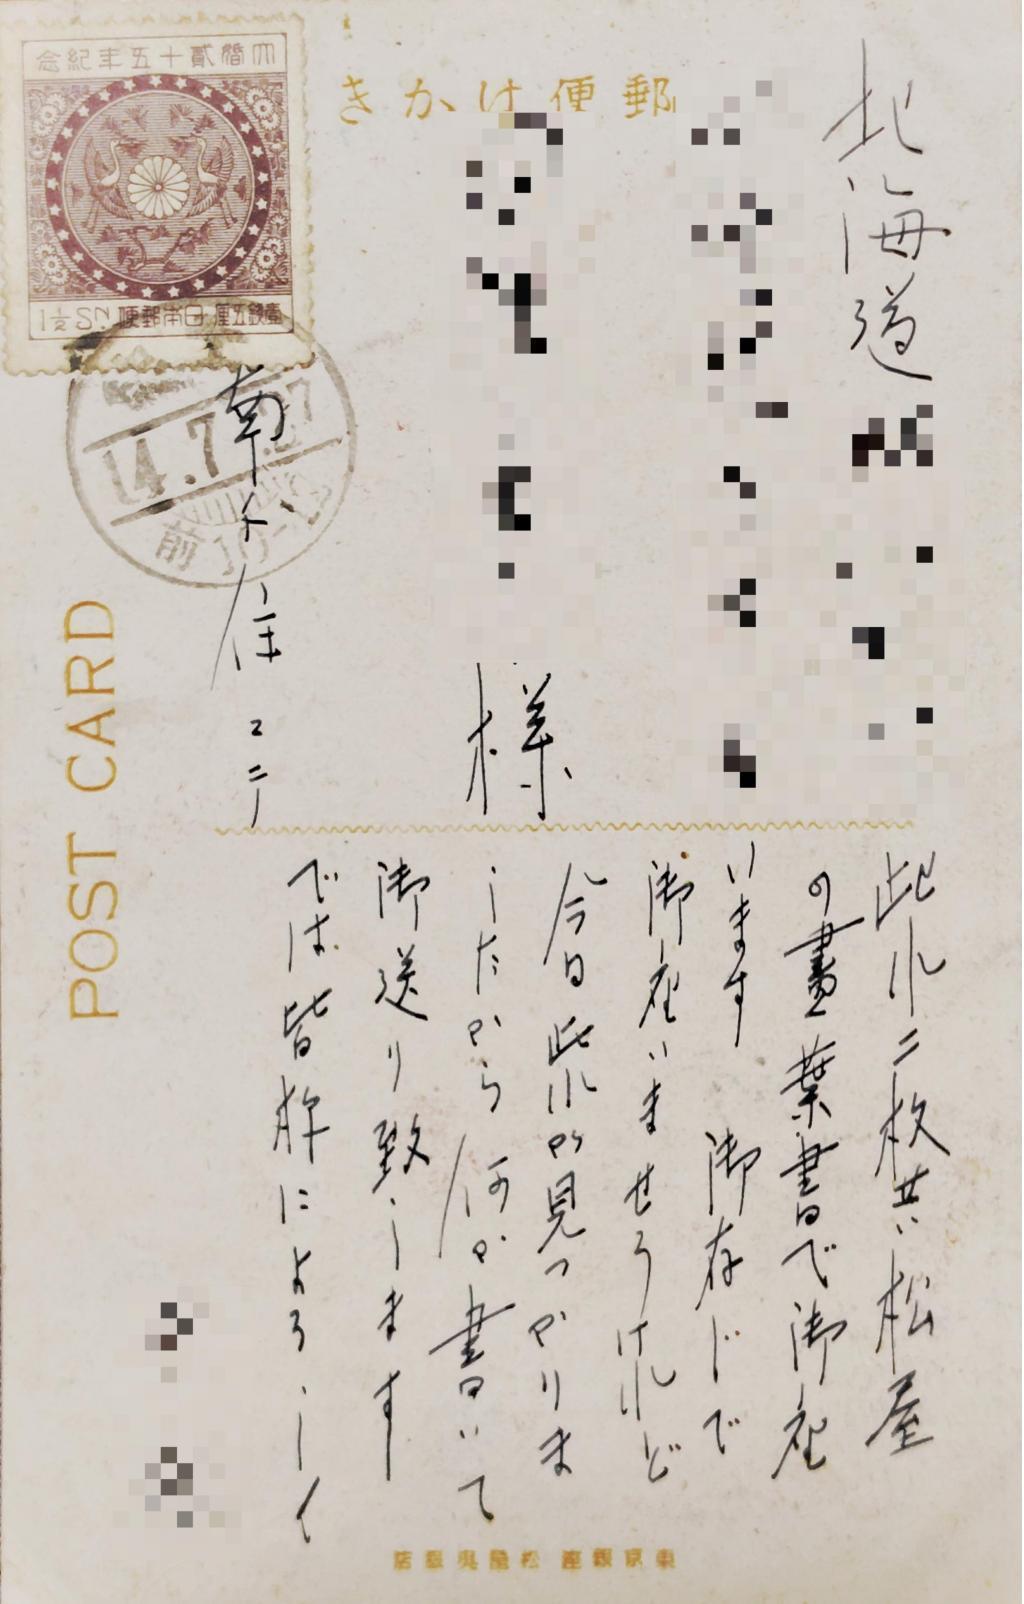 郵便はかき
大婚貳十五年紀念
壹銭五厘 日本郵便 1½ SN
14.7.27
前10-12
POST CARD
北海道
様
南千住
此れ二枚共松屋
の畫葉書で御座
います 御存じで
御座いませうけれど
今日此れが見つかりま
したから何か書いて
御送り致します
では皆様によろしく
東京銀座 松屋呉服店